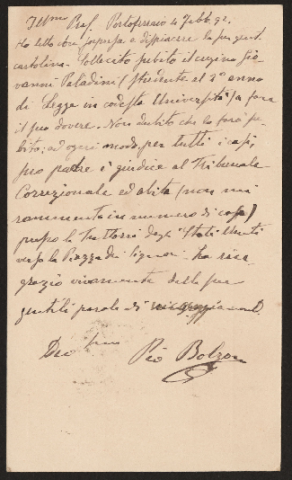 Ill.mo Prof. Portoferraio 4 Febb. 92.
Ho letto ora sorpresa e dispiacere la sua gent.
cartolina. Sollecito subito il cugino Gio-
vanni Paladini (studente al 2° anno
di legge in codesta Università) a fare
il suo dovere. Non dubito che lo farà su-
bito; ad ogni modo, per tutti i casi,
suo padre è giudice al Tribunale
Correzionale ed abita (non mi
rammento in numero di casa)
presso la Trattoria degli Stati Uniti
verso la Piazza dei Signori. La rin-
grazio vivamente delle sue
gentili parole di
Dev.mo
Pio Bolzon